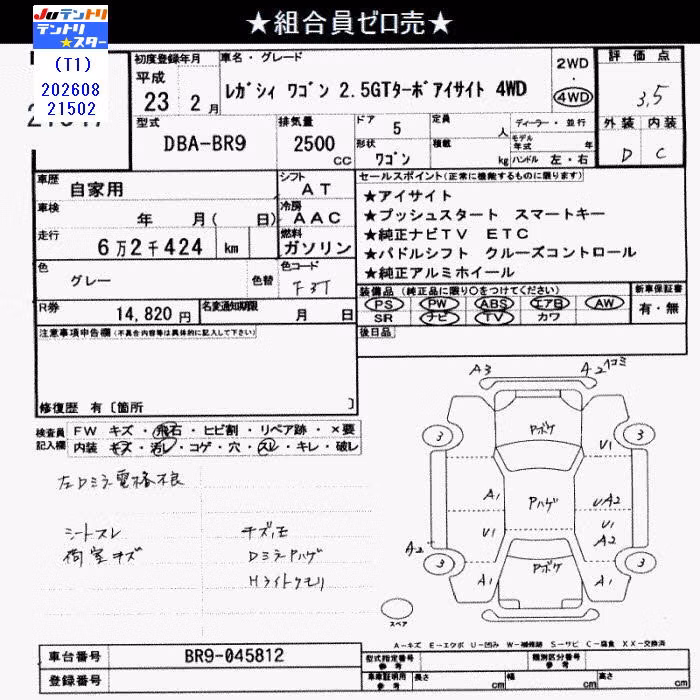 ★組合員ゼロ売★
JUテントリ
テントリ
★スター
(T1)
202608
21502
初度登録年月
平成
23 2月
車名・グレード
レガシィ ワゴン 2.5GTターボアイサイト 4WD
2WD
4WD
評価点
3.5
外装 内装
D C
型式
DBA-BR9
排気量
2500 CC
ドア 5
形状 ワゴン
定員 人
積載 kg
ディーラー・並行
モデル年式 年
ハンドル 左・右
車歴
自家用
シフト
AT
車検
年 月( 日)
冷房
AAC
走行
6万2千424 km
燃料
ガソリン
色
グレー
色替
色コード
F3T
R券
14,820円
名変通知期限
月 日
セールスポイント(正常に機能するものに限ります)
★アイサイト
★プッシュスタート スマートキー
★純正ナビTV ETC
★パドルシフト クルーズコントロール
★純正アルミホイール
装備品(純正品に限り○をつけてください)
PS PW ABS エアB AW
SR ナビ TV カワ
新車保証書
有・無
後日品
注意事項申告欄(不具合内容等は具体的に記入して下さい)
修復歴 有〔箇所 〕
検査員
記入欄
FW キズ・飛石・ヒビ割・リペア跡・×要
内装 キズ・汚レ・コゲ・穴・スレ・キレ・破レ
左Dミラー電格不良
シートスレ
荷室キズ
チズ凹
DミラーPハゲ
Hライトクモリ
A3
A2 凹コミ
Pボケ
3
3
U1
A1
Pハゲ
UA2
U1
U1
A2
A2
3
A1
Pボケ
A1
3
スペア
A-キズ E-エクボ U-凹み W-補修跡 S-サビ C-腐食 XX-交換済
車台番号
BR9-045812
登録番号
型式指定番号
参考
類別区分番号
参考
車庫証明用
参考
長さ cm
幅 cm
高さ cm